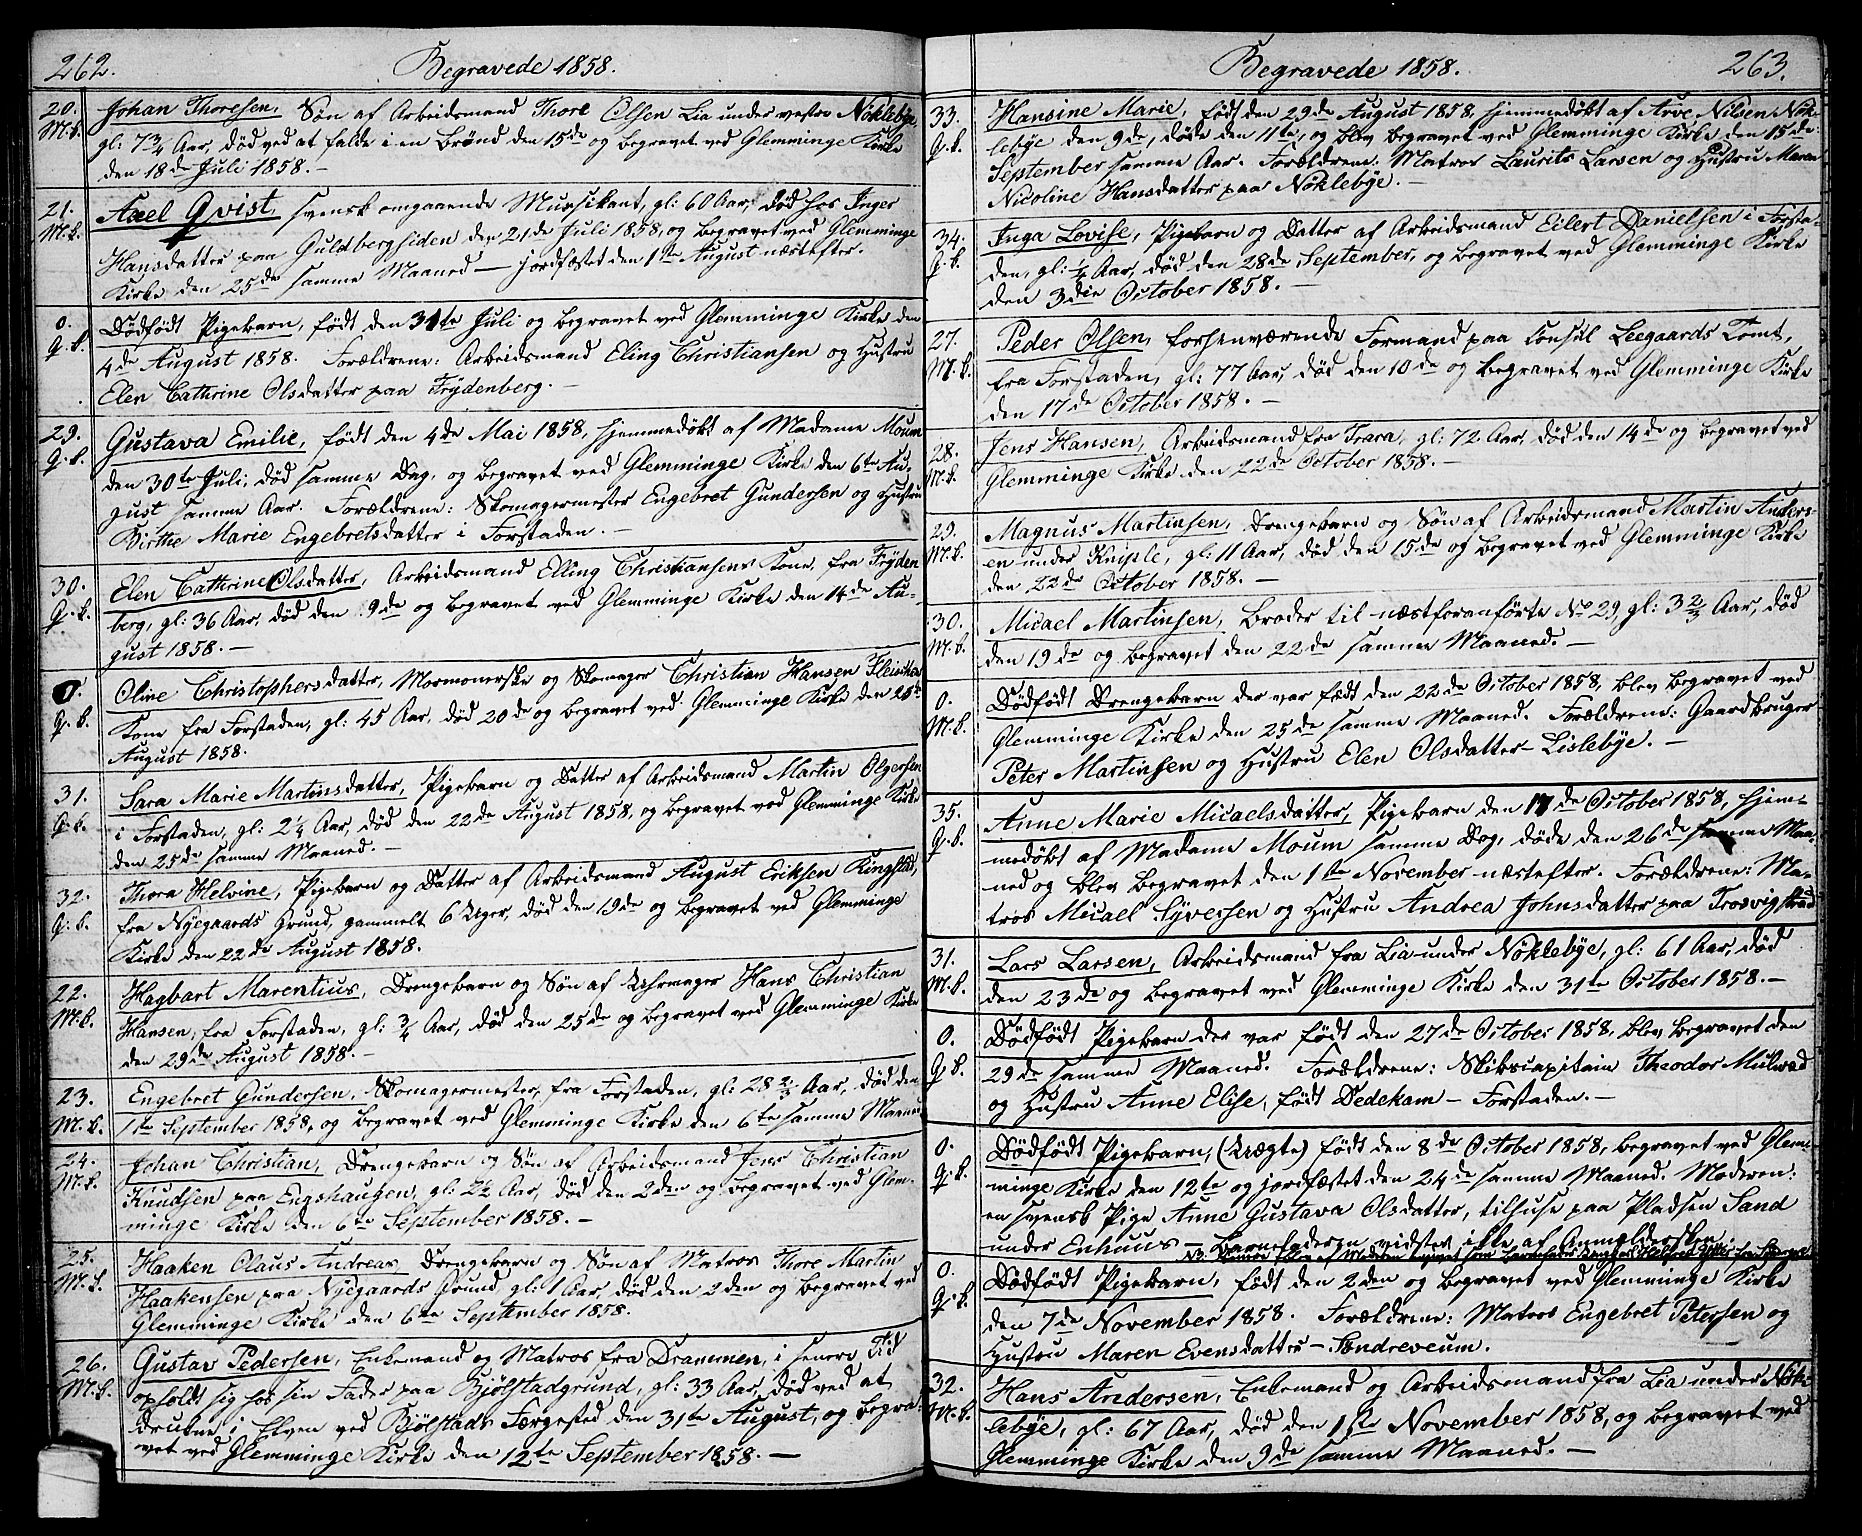 262.
Begravede 1858.
20. M.k. Johan Thoresen, Søn af Arbeidsmand Thore Olsen Lia under vestre Nöklebÿe,
gl: 7 3/4 Aar, død ved at falde i en Brønd den 15de og begravet ved Glemminge Kirke
den 18de Juli 1858. —
21. M.k. Axel Qvist, svensk omgaaende Mussikant, gl: 60 Aar, død hos Inger
Hansdatter paa Guldbergsiden den 21de Juli 1858, og begravet ved Glemminge
Kirke den 25de samme Maaned — jordfæstet den 1ste August næstefter.
0. Q.k. Dødfødt Pigebarn, født den 31te Juli og begravet ved Glemminge Kirke den
4de August 1858. Forældrene: Arbeidsmand Eling Christiansen og Hustru
Elen Cathrine Olsdatter paa Frÿdenberg. —
29. Q.k. Gustava Emilie, født den 4de Mai 1858, hjemmedøbt af Madame Moum
den 30te Juli, død samme Dag, og begravet ved Glemminge Kirke den 6te Au-
gust samme Aar. Forældrene: Skomagermester Engebret Gundersen og Hustru
Birthe Marie Engebretsdatter i Forstaden. —
30. Q.k. Elen Cathrine Olsdatter, Arbeidsmand Elling Christiansens Kone, fra Frÿden
berg, gl: 36 Aar, død den 9de og begravet ved Glemminge Kirke den 14de Au-
gust 1858. —
0. Q.k. Oline Christophersdatter, Mormonerske og Skomager Christian Hansen
Kone fra Forstaden, gl: 45 Aar, død 20de og begravet ved Glemminge Kirke den 25te
August 1858.
31. Q.k. Sara Marie Martinsdatter, Pigebarn og Datter af Arbeidsmand Martin Olgersen
i Forstaden, gl: 2 1/4 Aar, død den 22de August 1858, og begravet ved Glemminge Kirke
den 25de samme Maaned. —
32. Q.k. Thora Helvine, Pigebarn og Datter af Arbeidsmand August Eriksen Ringstad,
fra Nÿegaards Grund, gammelt 6 Uger, død den 19de og begravet ved Glemminge
Kirke den 22de August 1858.
22. M.k. Hagbart Marentius, Drengebarn og Søn af Uhrmager Hans Christian
Hansen, fra Forstaden, gl: 3/4 Aar, død den 25de og begravet ved Glemminge Kirke
den 29de August 1858. —
23. M.k. Engebret Gundersen, Skomagermester, fra Forstaden, gl: 28 2/3 Aar, død den
1ste September 1858, og begravet ved Glemminge Kirke den 6te samme Maaned
24. M.k. Johan Christian, Drengebarn og Søn af Arbeidsmand Jens Christian
Knudsen paa Engshaugen, gl: 2 1/2 Aar, død den 2den og begravet ved Glem-
minge Kirke den 6te September 1858. —
25. M.k. Haaken Claus Andreas, Drengebarn og Søn af Matros Thore Martin
Haakensen paa Nÿegaards Grund gl: 1 Aar, død den 2den og begravet ved
Glemminge Kirke den 6te September 1858.
26. M.k. Gustav Pedersen, Enkemand og Matros fra Drammen, i senere Tid
opholdt sig hos sin Fader paa Bjølstadgrund, gl: 33 Aar, død ved at
drukne i Elven ved Bjølstads Færgested den 31te August, og begra-
vet ved Glemminge Kirke den 12te September 1858. —
Begravede 1858.
263.
33. Q.k. Hansine Marie, født den 29de August 1858, hjemmedøbt af Arve Nilsen Nök-
lebÿe den 9de, døde den 11te, og blev begravet ved Glemminge Kirke den 15de
September samme Aar. Forældrene: Matros Laurits Larsen og Hustru Maren
Nicoline Hansdatter paa Nöklebÿe. —
34. Q.k. Inga Lovise, Pigebarn og Datter af Arbeidsmand Eilert Danielsen i Forsta-
den, gl: 1/4 Aar, død den 28de September, og begravet ved Glemminge Kirke
den 3die October 1858. —
27. M.k. Peder Olsen, forhenværende Formand paa Consul Leegaards Tomt,
fra Forstaden, gl: 77 Aar, død den 10de og begravet ved Glemminge Kirke
den 17de October 1858. —
28. M.k. Jens Hansen, Arbeidsmand fra Trara, gl: 72 Aar, død den 14de og begravet ved
Glemminge Kirke den 22de October 1858. —
29. M.k. Magnus Martinsen, Drengebarn og Søn af Arbeidsmand Martin Anders-
en under Kniple, gl: 11 Aar, død den 15de og begravet ved Glemminge Kirke
den 22de October 1858. —
30. M.k. Micael Martinsen, Broder til næstforanførte No 29, gl: 3 2/3 Aar, død
den 19de og begravet den 22de samme Maaned. —
0. M.k. Dødfødt Drengebarn der var født den 22de October 1858, blev begravet ved
Glemminge Kirke den 25de samme Maaned. Forældrene: Gaardbruger
Peter Martinsen og Hustru Elen Olsdatter Lislebÿe. —
35. Q.k. Anne Marie Micaelsdatter, Pigebarn den 17de October 1858, hjem-
medøbt af Madame Moum samme Dag, døde den 26de samme Maa-
ned og blev begravet den 1ste November næstefter. Forældrene: Ma-
tros Micael Sÿversen og Hustru Andrea Johnsdatter paa Trosvigstrand
31. M.k. Lars Larsen, Arbeidsmand fra Lia under Nöklebÿe, gl: 61 Aar, død
den 23de og begravet ved Glemminge Kirke den 31te October 1858. —
0. Q.k. Dødfødt Pigebarn der var født den 27de October 1858, blev begravet den
29de samme Maaned. Forældrene: Skibscapitain Theodor
og Hustru Anne Elise, født Dedekam — Forstaden. —
0. Q.k. Dødfødt Pigebarn, (Uægte) født den 8de October 1858, begravet ved Glem-
minge Kirke den 12te og jordfæstet den 24de samme Maaned. Moderen:
en svensk Pige Anne Gustava Olsdatter, tilhuse paa Pladsen Sand
under Enhuus — Barnefaderen vidstes ikke af Anmeldersken.
0. Q.k. Dødfødt Pigebarn, født den 2den og begravet ved Glemminge Kirke
den 7de November 1858. Forældrene: Matros Engebret Petersen og
Hustru Maren Evensdatter — Søndreveum.
32. M.k. Hans Andersen, Enkemand og Arbeidsmand fra Lia under Nök-
lebÿe, gl: 67 Aar, død den 1ste November 1858, og begravet ved
Glemminge Kirke den 9de samme Maaned. —